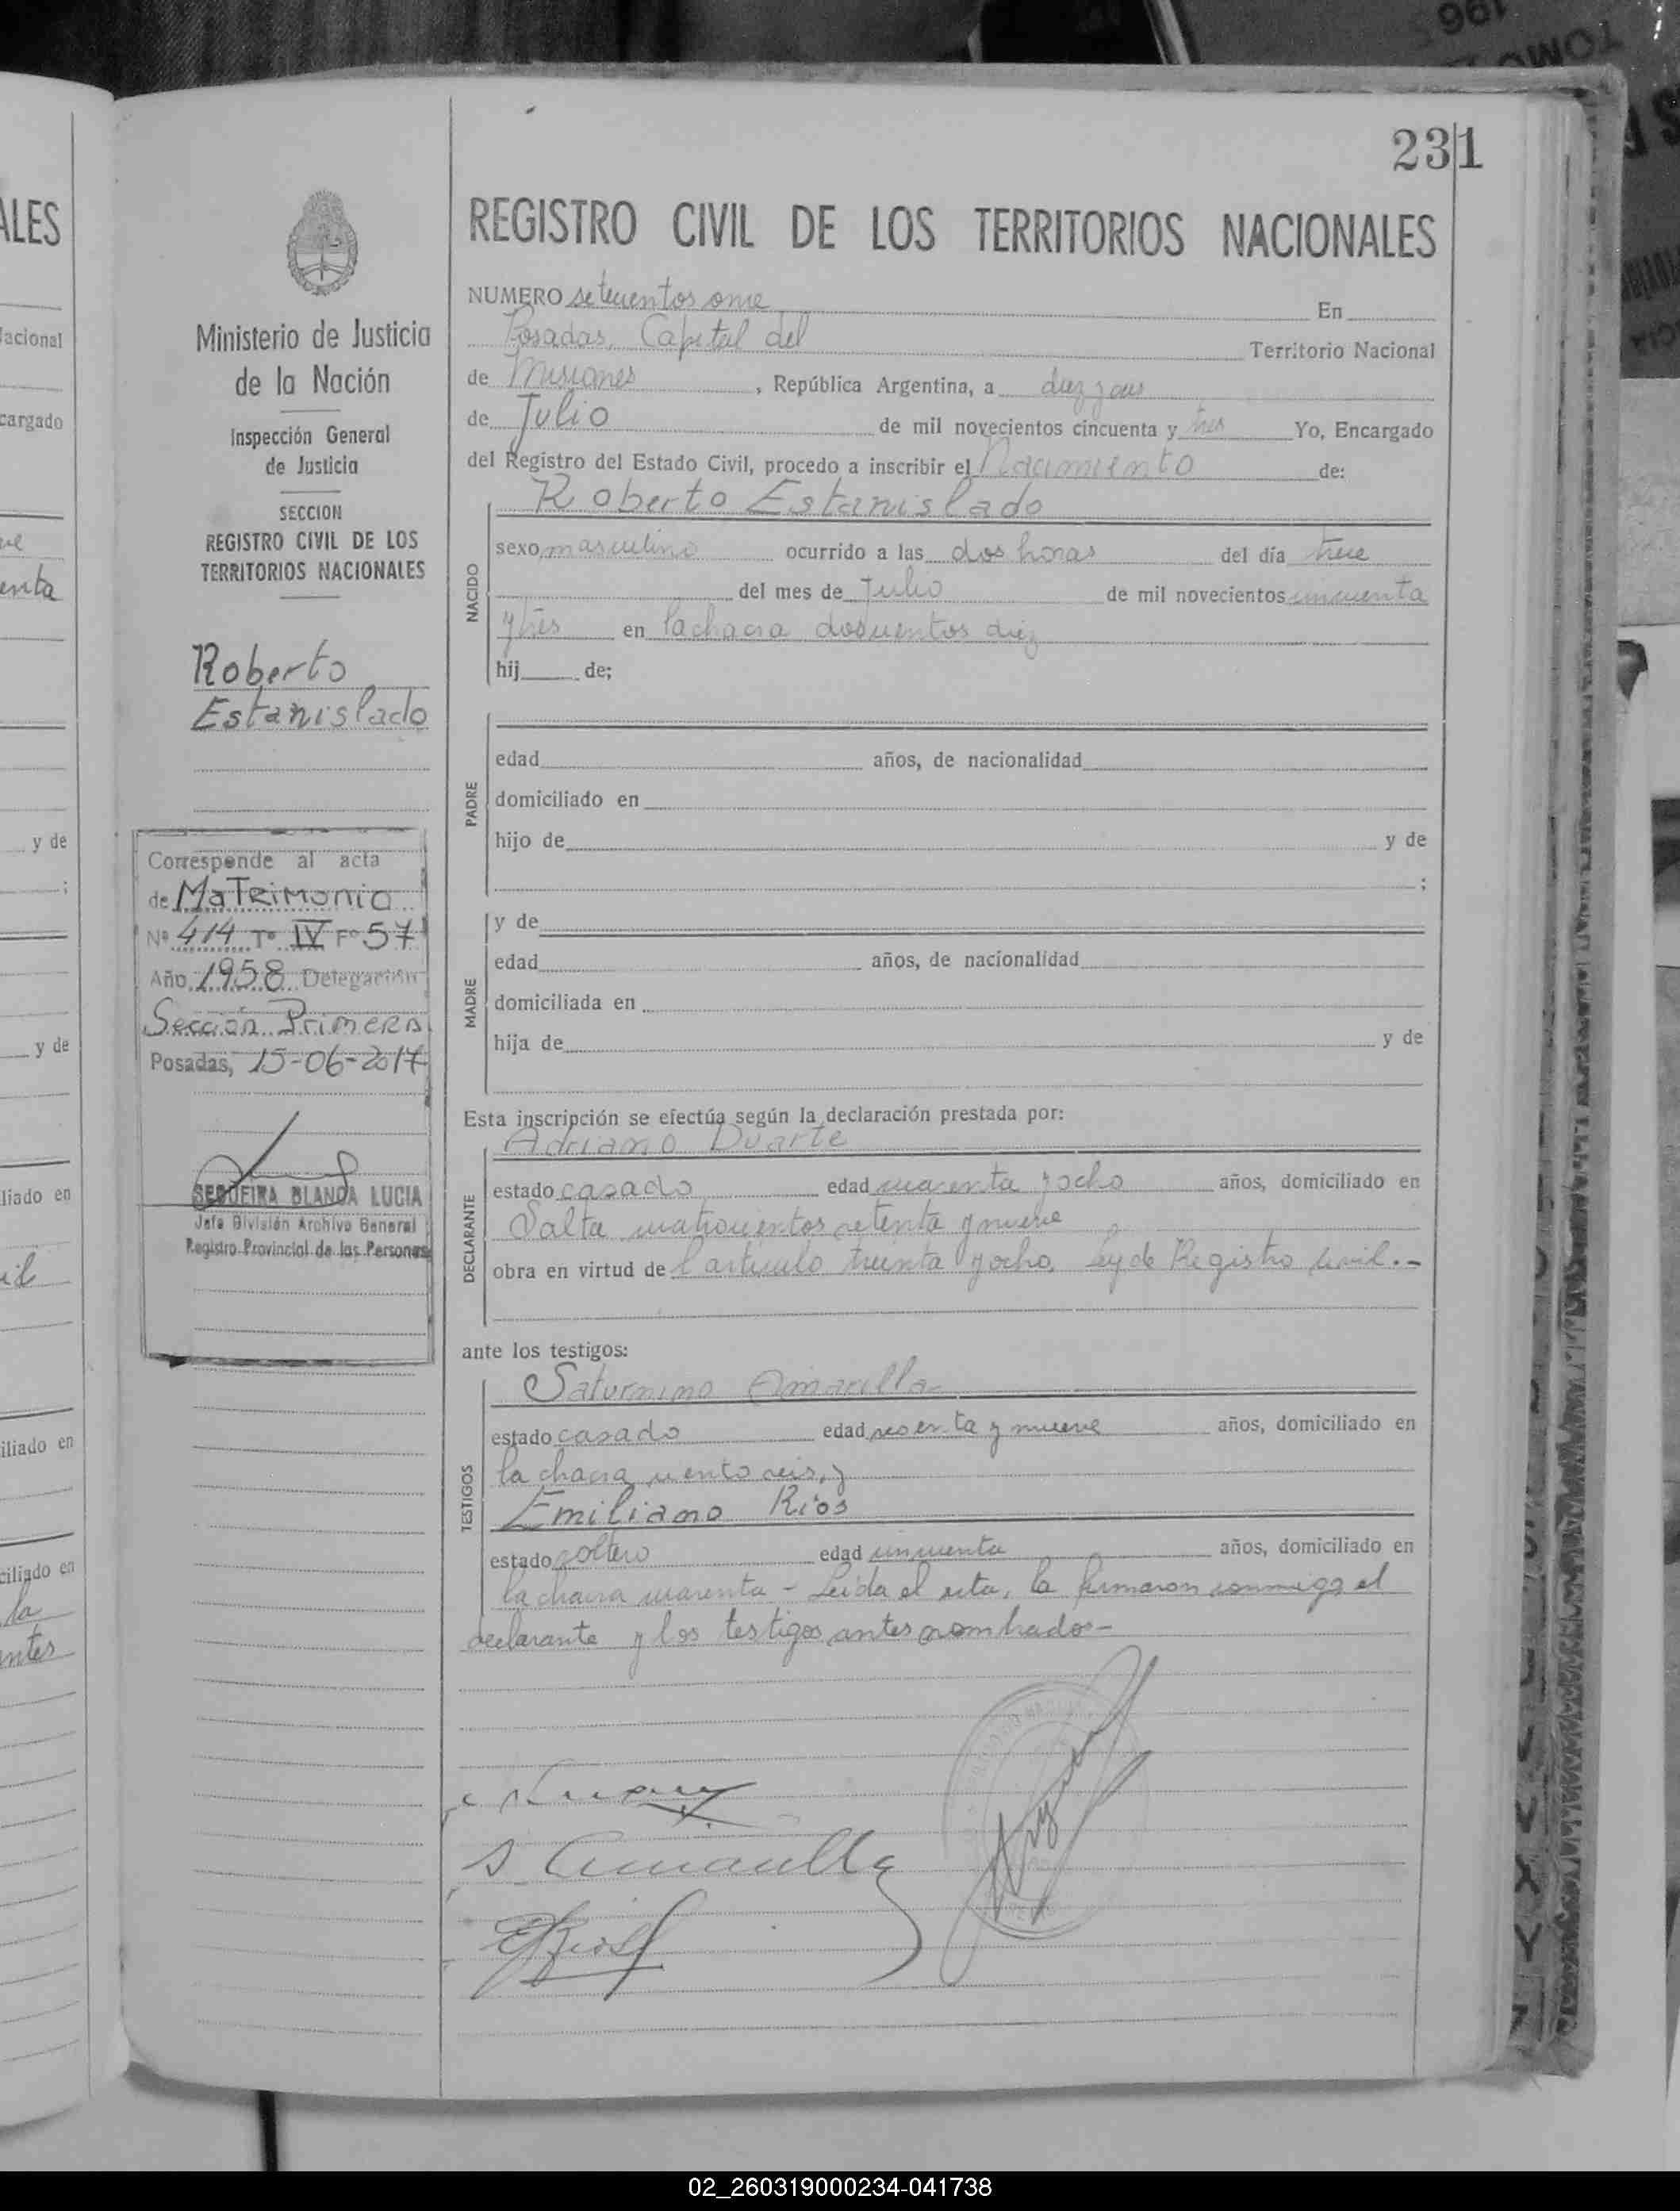 196
TOMO
231
ALES
REGISTRO CIVIL DE LOS TERRITORIOS NACIONALES
NUMERO setecientos once En
Posadas, Capital del Territorio Nacional
de Misiones, República Argentina, a diez y seis
de Julio de mil novecientos cincuenta y tres Yo, Encargado
del Registro del Estado Civil, procedo a inscribir el Nacimiento de:
NACIDO
Roberto Estanislado
sexo masculino ocurrido a las dos horas del día trece
del mes de Julio de mil novecientos cincuenta
y tres en la chacra doscientos diez
hij de;
PADRE
edad años, de nacionalidad
domiciliado en
hijo de y de
;
MADRE
y de
edad años, de nacionalidad
domiciliada en
hija de y de
Esta inscripción se efectúa según la declaración prestada por:
DECLARANTE
Adriano Duarte
estado casado edad cuarenta y ocho años, domiciliado en
Salta cuatrocientos setenta y nueve
obra en virtud de l artículo treinta y ocho, Ley de Registro Civil.-
ante los testigos:
TESTIGOS
Saturnino Amarilla
estado casado edad sesenta y nueve años, domiciliado en
la chacra ciento seis, y
Emiliano Ríos
estado soltero edad cincuenta años, domiciliado en
la chacra cuarenta - Leída el acta, la firmaron conmigo el
declarante y los testigos antes nombrados-
S. Amarilla
ERios
Ministerio de Justicia
de la Nación
Inspección General
de Justicia
SECCION
REGISTRO CIVIL DE LOS
TERRITORIOS NACIONALES
Roberto
Estanislado
Corresponde al acta
de MaTRiMonio
Nº 414 Tº IV Fº 57
Año 1958 Delegación
Sección PRimeRa
Posadas, 15-06-2017
SEQUEIRA BLANCA LUCIA
Jefe División Archivo General
Registro Provincial de las Personas
Nacional
cargado
enta
y de
;
y de
liado en
il
iliado en
ciliado en
la
antes
02_260319000234-041738